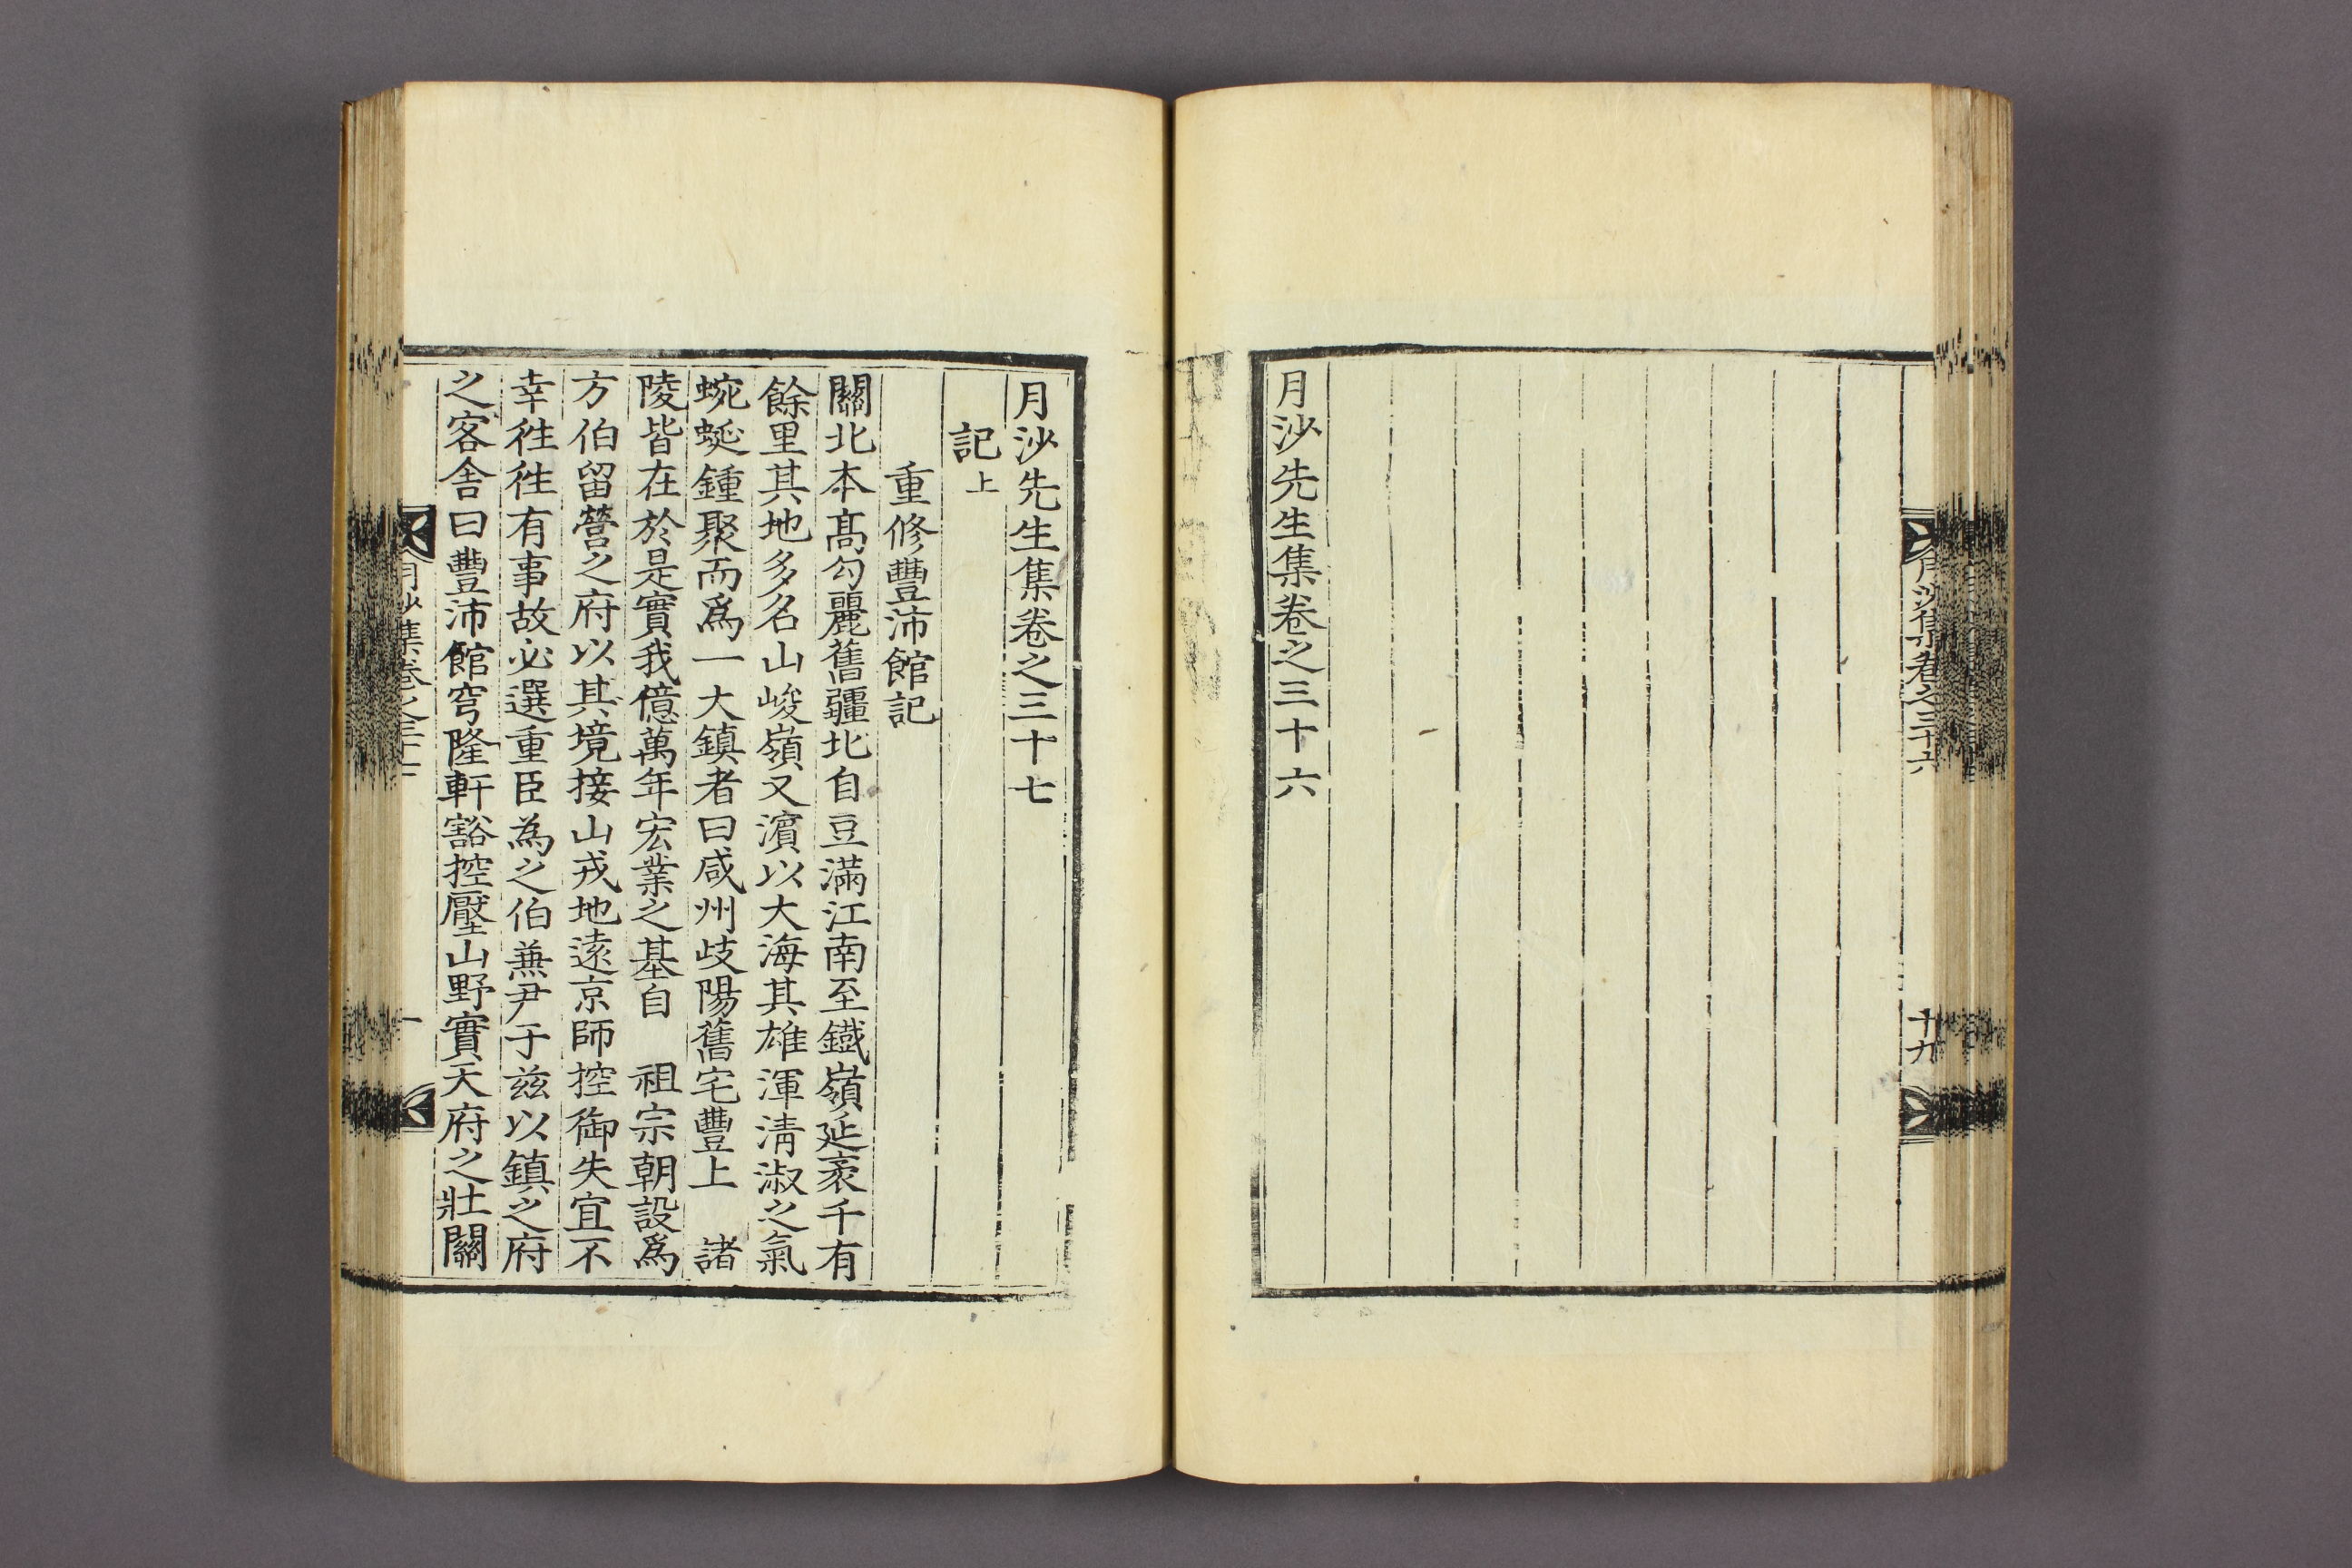 月沙先生集卷之三十六
月沙集卷之三十六
十九
月沙先生集卷之三十七
記上
重修豐沛館記
關北本高勾麗舊疆北自豆滿江南至鐵嶺延袤千有
餘里其地多名山峻嶺又濱以大海其雄渾淸淑之氣
蜿蜒鍾聚而爲一大鎮者曰咸州歧陽舊宅豐上 諸
陵皆在於是實我億萬年宏業之基自 祖宗朝設爲
方伯留營之府以其境接山戎地遠京師控御失宜不
幸徃徃有事故必選重臣為之伯兼尹于兹以鎮之府
之客舍曰豐沛館穹隆軒豁控壓山野實天府之壯關
月沙集卷之三十七
一